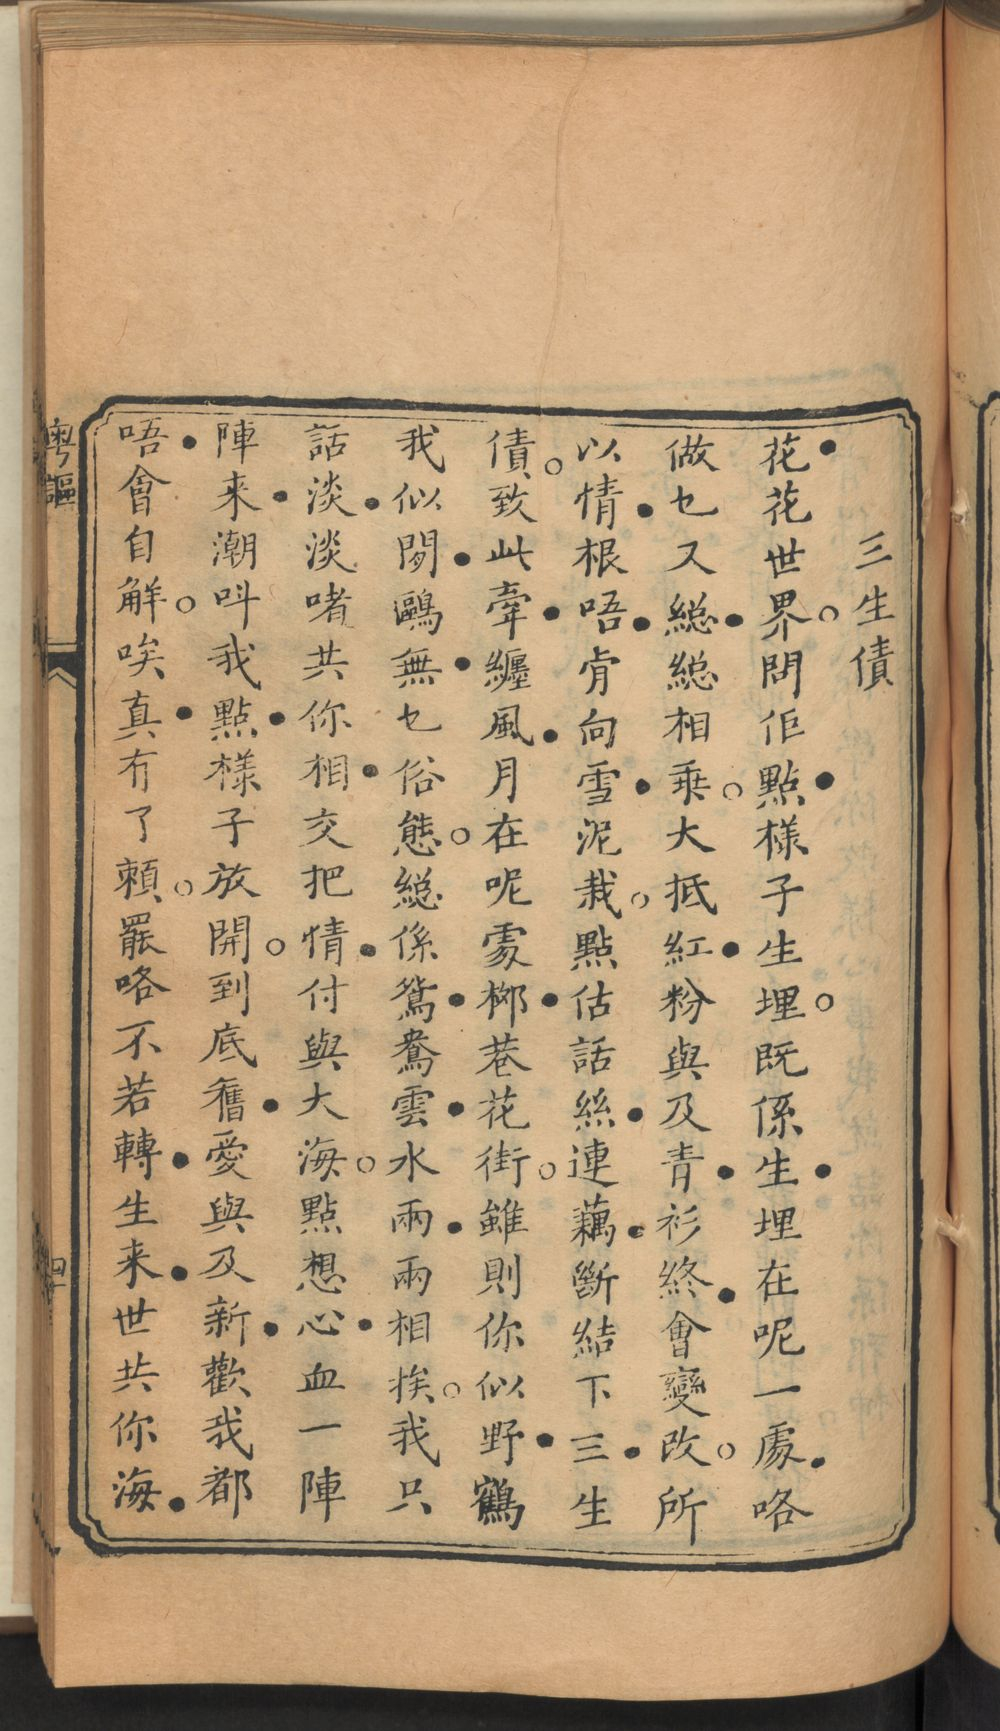 三生債
花花世界問佢點樣子生埋既係生埋在呢一處咯
做乜又縂縂相乘大抵紅粉與及青衫終會變改所
以情根唔肯向雪泥栽點估話絲連藕斷結下三生
債致此牽纏風月在呢處桞巷花街雖則你似野鶴
我似閒鷗無乜俗態縂係鴛鴦雲水兩兩相挨我只
話淡淡啫共你相交把情付與大海點想心血一陣
陣来潮呌我點樣子放開到底舊愛與及新歡我都
唔會自解唉真冇了賴罷咯不若轉生来世共你海
粤謳
四